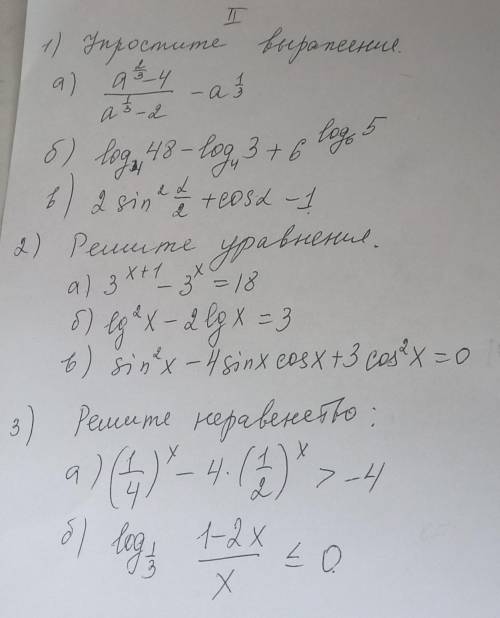 II
1) Упростите выражение.
а) \frac{a^{\frac{2}{3}}-4}{a^{\frac{1}{3}}-2} - a^{\frac{1}{3}}
б) log₄ 48 - log₄ 3 + 6^{log₆ 5}
в) 2 sin² \frac{α}{2} + cosα - 1
2) Решите уравнения.
а) 3^{x+1} - 3^{x} = 18
б) lg²x - 2 lg x = 3
в) sin²x - 4 sinx cosx + 3 cos²x = 0
3) Решите неравенство:
а) (\frac{1}{4})^{x} - 4·(\frac{1}{2})^{x} > -4
б) log_{\frac{1}{3}} \frac{1-2x}{x} ≤ 0.